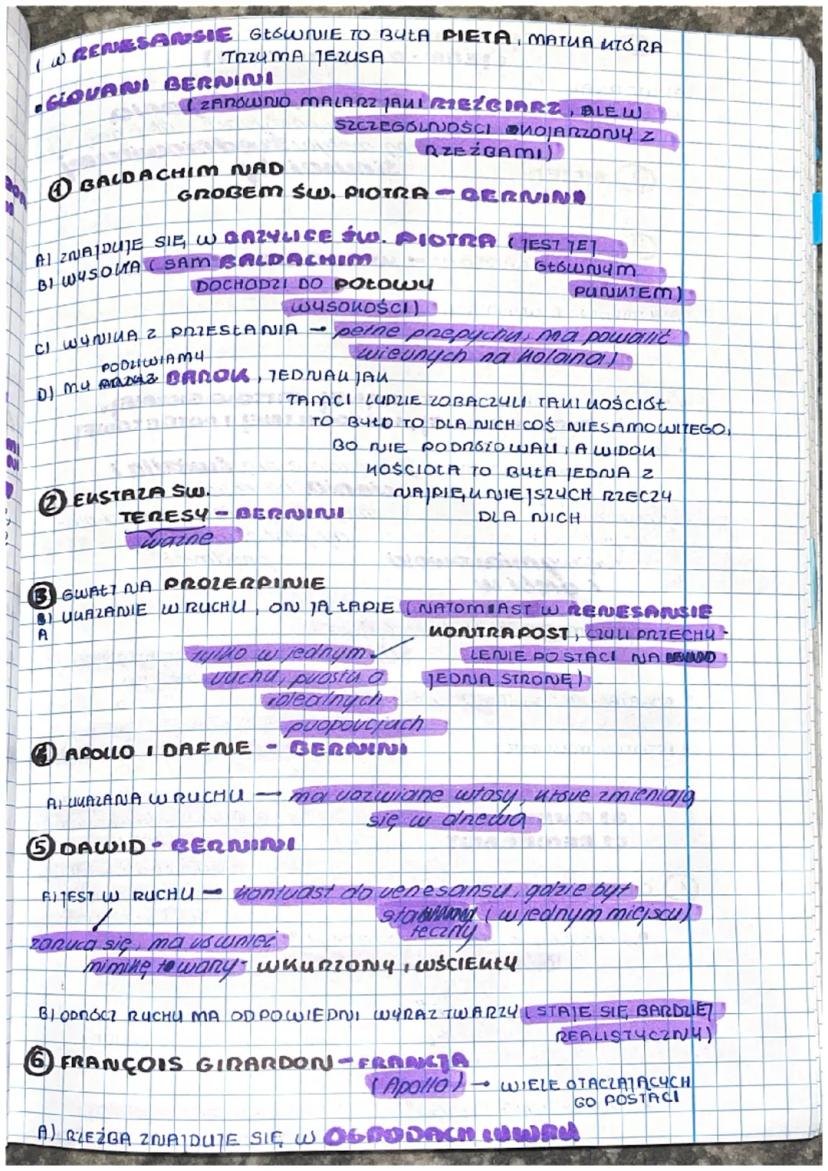 ( W RENESANSIE GŁÓWNIE TO BYŁA PIETA, MATKA KTÓRA
TRZYMA JEZUSA
• GIOVANI BERNINI
( ZARÓWNO MALARZ JAK I RZEŹBIARZ, ALE W
SZCZEGÓLNOŚCI KOJARZONY Z
RZEŹBAMI)
① BALDACHIM NAD
GROBEM ŚW. PIOTRA – BERNINI
A) ZNAJDUJE SIĘ W BAZYLICE ŚW. PIOTRA (JEST JEJ
GŁÓWNYM
PUNKTEM)
B) WYSOKA ( SAM BALDACHIM
DOCHODZI DO POŁOWY
WYSOKOŚCI)
C) WYNIKA Z PRZESŁANIA – pełne przepychu, ma powalić
wiernych na kolana)
D) MY PODZIWIAMY BAROK, JEDNAK JAK
TAMCI LUDZIE ZOBACZYLI TAKI KOŚCIÓŁ
TO BYŁO TO DLA NICH COŚ NIESAMOWITEGO,
BO NIE PODRÓŻOWALI, A WIDOK
KOŚCIOŁA TO BYŁA JEDNA Z
NAJPIĘKNIEJSZYCH RZECZY
DLA NICH
② EKSTAZA ŚW.
TERESY – BERNINI
ważne
③ GWAŁT NA PROZERPINIE
B) UKAZANIE W RUCHU, ON JĄ ŁAPIE (NATOMIAST W RENESANSIE
A
KONTRAPOST, CZYLI PRZECHY-
LENIE POSTACI NA
JEDNĄ STRONĘ)
tylko w jednym
ruchu, prosta o
idealnych
proporcjach
④ APOLLO I DAFNE – BERNINI
A) UKAZANA W RUCHU — ma rozwiane włosy, które zmieniają
się w drzewa
⑤ DAWID – BERNINI
A) JEST W RUCHU – kontrast do renesansu, gdzie był
statyczny ( w jednym miejscu)
zarzuca się, ma również
mimikę twarzy – WKURZONY, WŚCIEKŁY
B) OPRÓCZ RUCHU MA ODPOWIEDNI WYRAZ TWARZY ( STAJE SIĘ BARDZIEJ
REALISTYCZNY)
⑥ FRANÇOIS GIRARDON – FRANCJA
(Apollo) → WIELE OTACZAJĄCYCH
GO POSTACI
A) RZEŹBA ZNAJDUJE SIĘ W OGRODACH